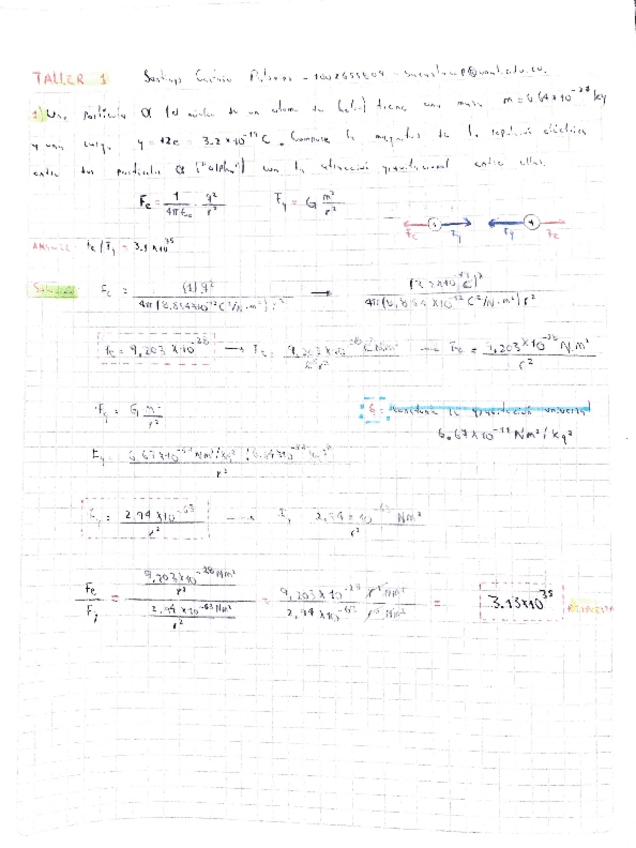 TALLER 1
1) Una partícula α (el núcleo de un átomo de helio) tiene una masa m = 6.64x10⁻²⁷ kg
y una carga q = +2e = 3.2x10⁻¹⁹ C. Compare la magnitud de la repulsión eléctrica
entre dos partículas α ("alpha") con la atracción gravitacional entre ellas.
Fe = 1/4πε₀ · q²/r²   Fg = G m²/r²
Fe Fg Fg Fe
ANSWER: Fe/Fg = 3.1x10³⁵
Solución: Fe = (1) q² / 4π(8,854x10⁻¹² C²/N·m²) r² → / 4π(8,854x10⁻¹² C²/N·m²) r²
Fe = 9,203x10⁻²⁸ → Fe = → Fe = 9,203x10⁻²⁸ N.m² / r²
Fg = G / r²   G = constante de gravitación universal
6.67x10⁻¹¹ Nm²/kg²
Fg = / r²
Fg = 2,94x10⁻⁶³ / r² → Fg 2,94x10⁻⁶³ Nm² / r²
Fe/Fg = 9,203x10⁻²⁸ Nm² / r² / 2,94x10⁻⁶³ Nm² / r² = 9,203x10⁻²⁸ r² Nm² / 2,94x10⁻⁶³ r² Nm² = 3.13x10³⁵ RESPUESTA